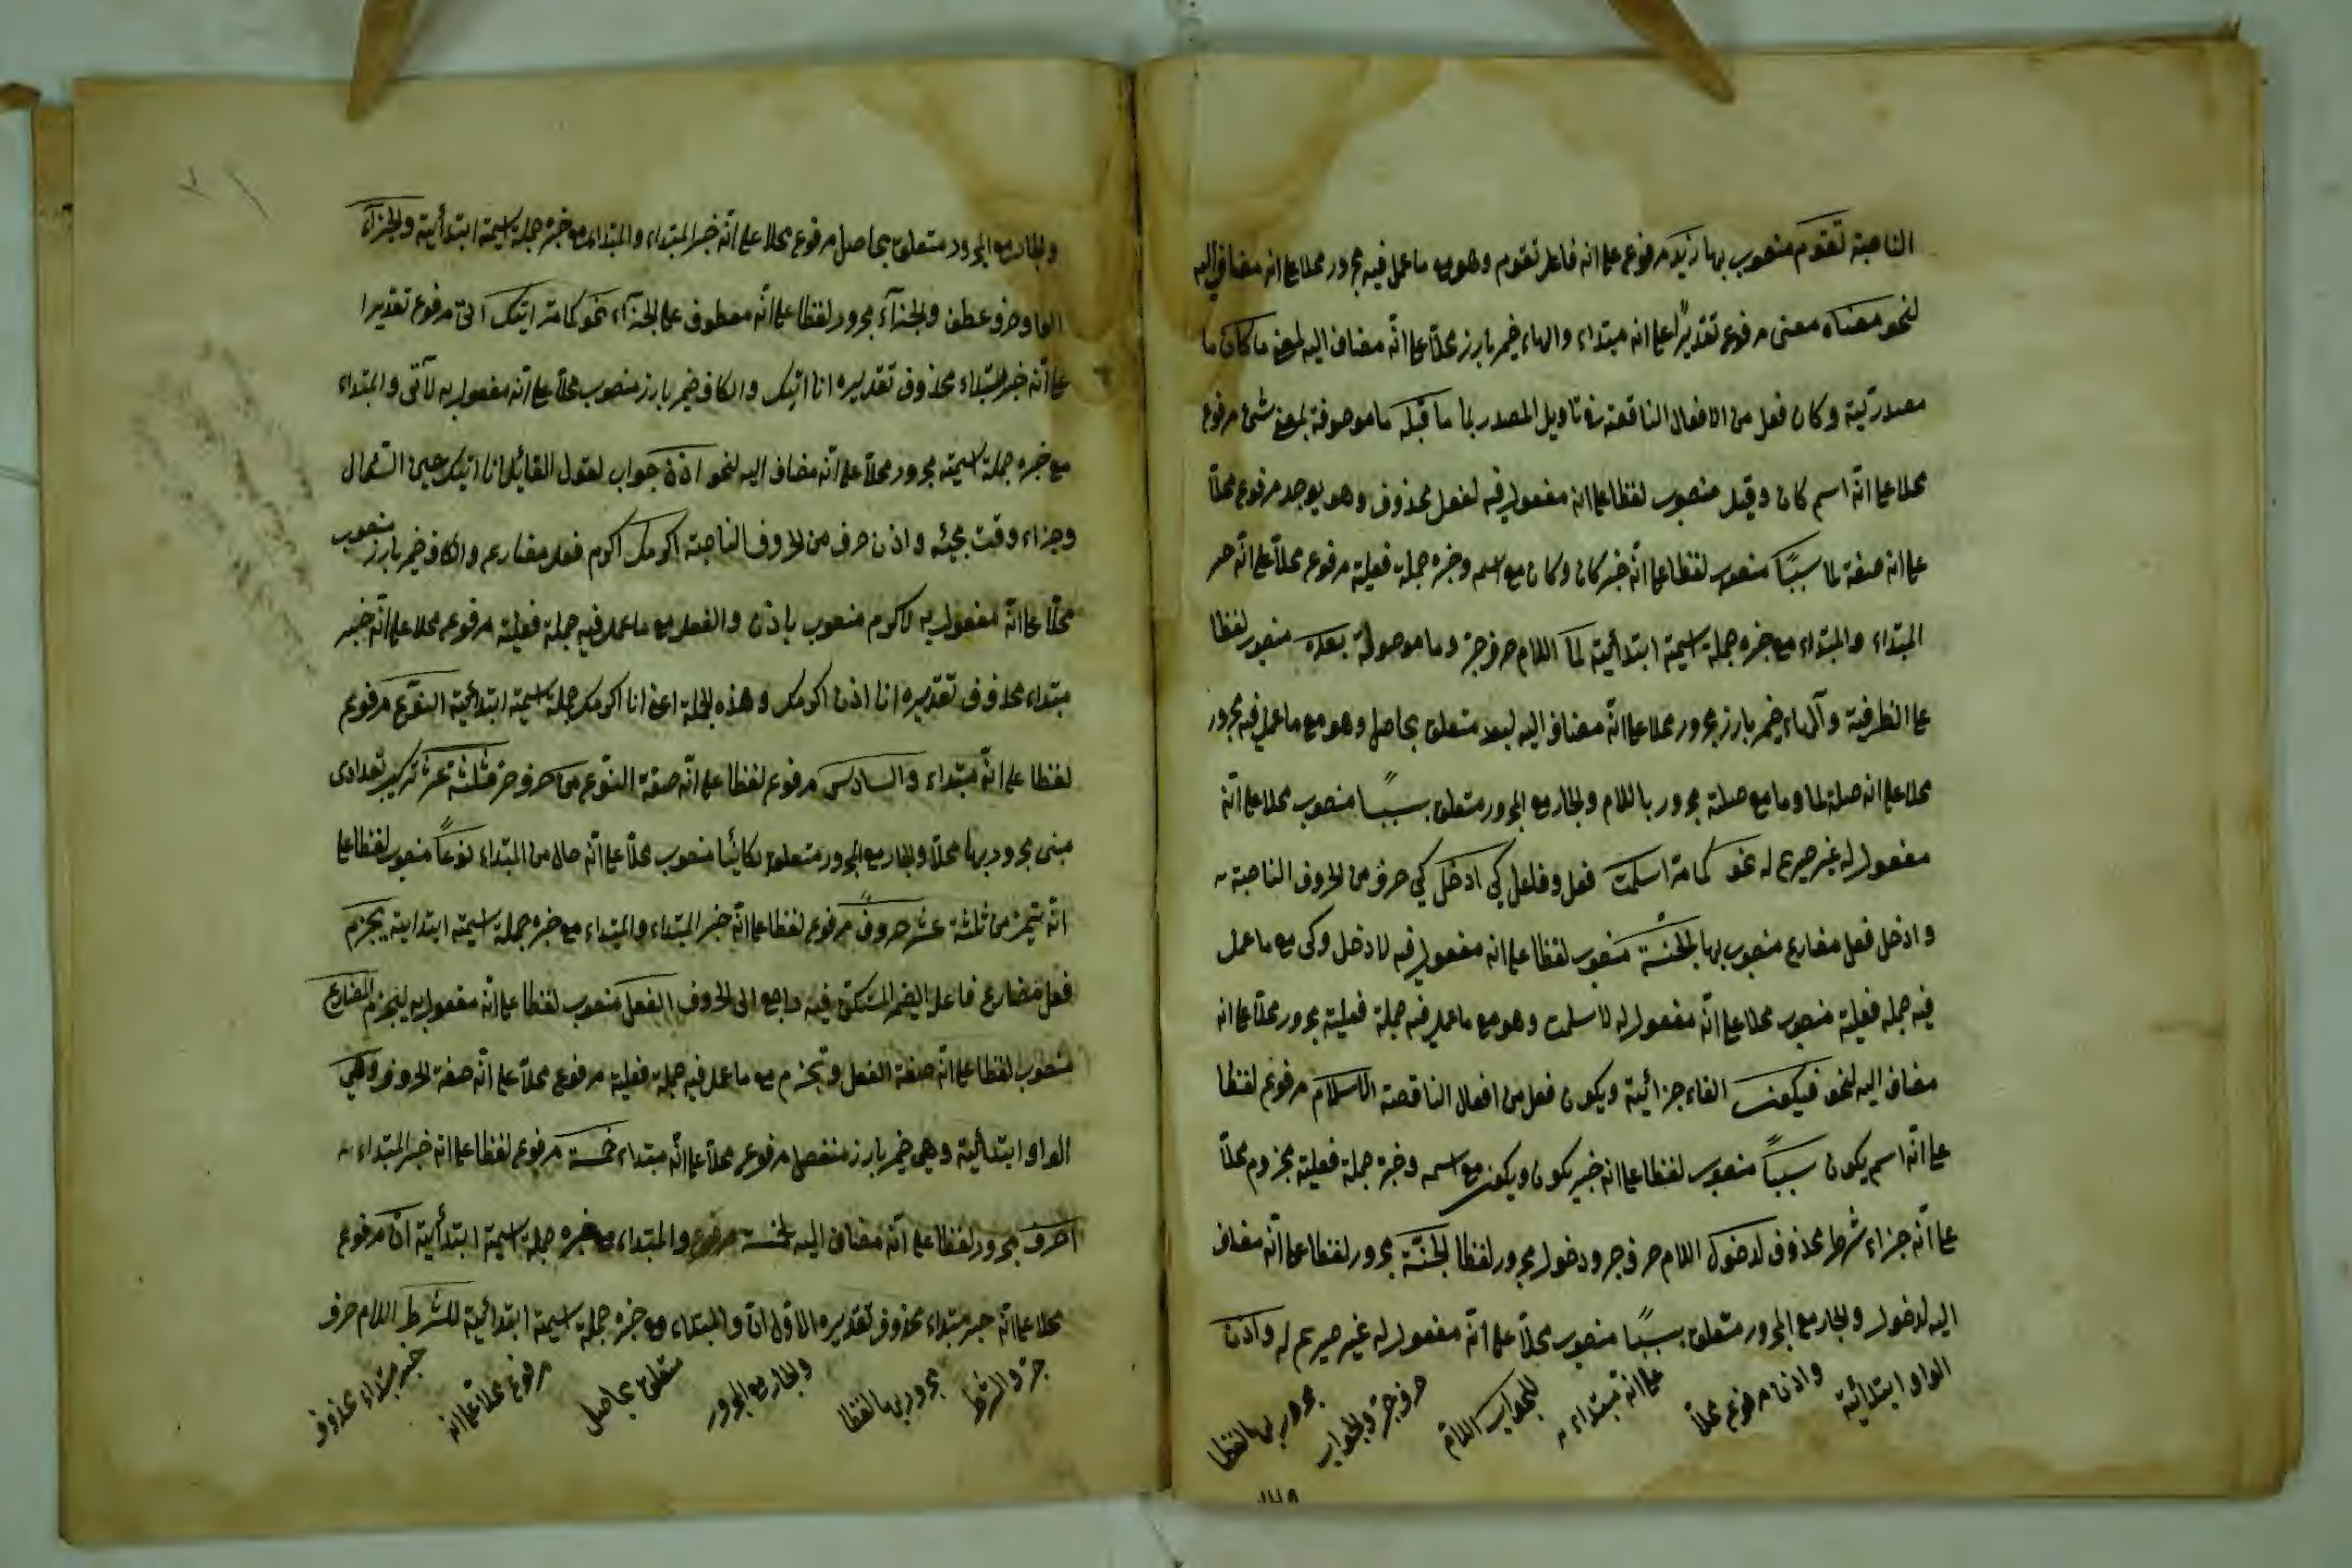 الناصبة تقوم منصوب بها زيد مرفوع على انه فاعل تقوم وهو مع ما عمل فيه مجرور محلا على انه مضاف اليه
لنحو معناه معنى مرفوع تقديرًا على انه مبتداء والهاء ضمير بارز محلاً على انّه مضاف اليه لمعنى ما كان ما
مصدرية وكان فعل من الافعال الناقصة في تاويل المصدر لما ما قبله ما موصوفة بمعنى شئ مرفوع
محلا على انّه اسم كان وقبل منصوب لفظا على انه مفعول فيه لفعل محذوف وهو يوجد مرفوع محلاً
على انه صفة لما سببًا منصوب لفظا على انّه خبر كان وكان مع اسمه وخبره جملة فعلية مرفوع محلاً على انّه خبر
المبتداء والمبتداء مع خبره جملة اسمية ابتدائية لما اللام حرف جرّ وما موصولة بعده منصوب لفظا
على الظرفية وآلهاء ضمير بارز مجرور محلا على انّه مضاف اليه لبعد متعلق بحاصل وهو مع ما عمل فيه مجرور
محلا على انه صلة لما وما مع صلته مجرور باللام والجار مع المجرور متعلق بسببًا منصوب محلا على انّه
مفعول له غير صريح له نحو كما مرّ اسلمت فعل وفاعل كي ادخل كي حرف من الحروف الناصبة
وادخل فعل مضارع منصوب بها الجنّة منصوب لفظا على انه مفعول فيه لادخل وكى مع ما عمل
فيه جملة فعلية منصوب محلا على انّه مفعول له لاسلمت وهو مع ما عمل فيه جملة فعلية مجرور محلاً على انه
مضاف اليه لنحو فيكون الفاء جزائية ويكون فعل من افعال الناقصة الاسلام مرفوع لفظا
على انّه اسم يكون سببًا منصوب لفظا على انه خبر يكون ويكون مع اسمه وخبره جملة فعلية مجزوم محلاّ
على انّه جزاء شرط محذوف لدخول اللام حرف جر ودخول مجرور لفظا الجنّة مجرور لفظا على انّه مضاف
اليه لدخول والجار مع المجرور متعلق بسببًا منصوب محلاً على انّه مفعول له غير صريح له واذن
الواو ابتدائية واذن مرفوع محلاّ على انه مبتداء للجواب اللام حرف جرّ والجواب مجرور بها لفظا
والجار مع المجرور متعلق بحاصل مرفوع محلا على انّه خبر المبتداء والمبتداء مع خبره جملة اسمية ابتدائية والجزآء
الواو حرف عطف والجزآء مجرور لفظا على انّه معطوف على الجزآء نحو كما مرّ اتيك اتى مرفوع تقديرا
على انّه خبر مبتداء محذوف تقديره انا اتيك والكاف ضمير بارز منصوب محلاً على انّه مفعول به لآتى والمبتداء
مع خبره جملة اسمية مجرور محلاً على انّه مضاف اليه لنحو اذن جواب لقول القائل انا اتيك حين
وجزاء وقت مجيئه واذن حرف من الحروف الناصبة اكرمك اكرم فعل مضارع والكاف ضمير بارز منصوب
محلّا على انّه مفعول به لاكرم منصوب باذن والفعل مع ما عمل فيه جملة فعلية مرفوع محلا على انّه خبر
مبتداء محذوف تقديره انا اذن اكرمك وهذه الجملة اعنى انا اكرمك جملة اسمية ابتدائية النوع مرفوع
لفظا على انّه مبتداء والسادس مرفوع لفظا على انّه صفة النوع من حرف جرّ ثلثة عشر تركيب تعدادى
مبنى مجرور بها محلاً والجار مع المجرور متعلق بكائنًا منصوب محلاً على انّه حال من المبتداء نوعاً منصوب لفظا على
انّه تميز من ثلثة عشر حروفٌ مرفوع لفظا على انّه خبر المبتداء والمبتداء مع خبره جملة اسمية ابتداية يجزم
فعل مضارع فاعله الضمير المستكن فيه راجع الى الحروف الفعل منصوب لفظا على انّه مفعول به ليجزم المضارع
منصوب لفظا على انّه صفة الفعل وتجزم مع ما عمل فيه جملة فعلية مرفوع محلاً على انّه صفة الحروف وهي
الواو ابتدائية وهى ضمير بارز منفصل مرفوع محلاً على انّه مبتداء خمسة مرفوع لفظا على انّه خبر المبتداء
احرف مجرور لفظا على انّه مضاف اليه لخمسة مرفوع والمبتداء مع خبره جملة اسمية ابتدائية ان مرفوع
محلا على انّه خبر مبتداء محذوف تقديره الاول ان والمبتداء مع خبره جملة اسمية ابتدائية للشرط اللام حرف
جرّ والشرط مجرور بها لفظا والجار مع المجرور متعلق بحاصل مرفوع محلاّ على انه خبر مبتداء محذوف